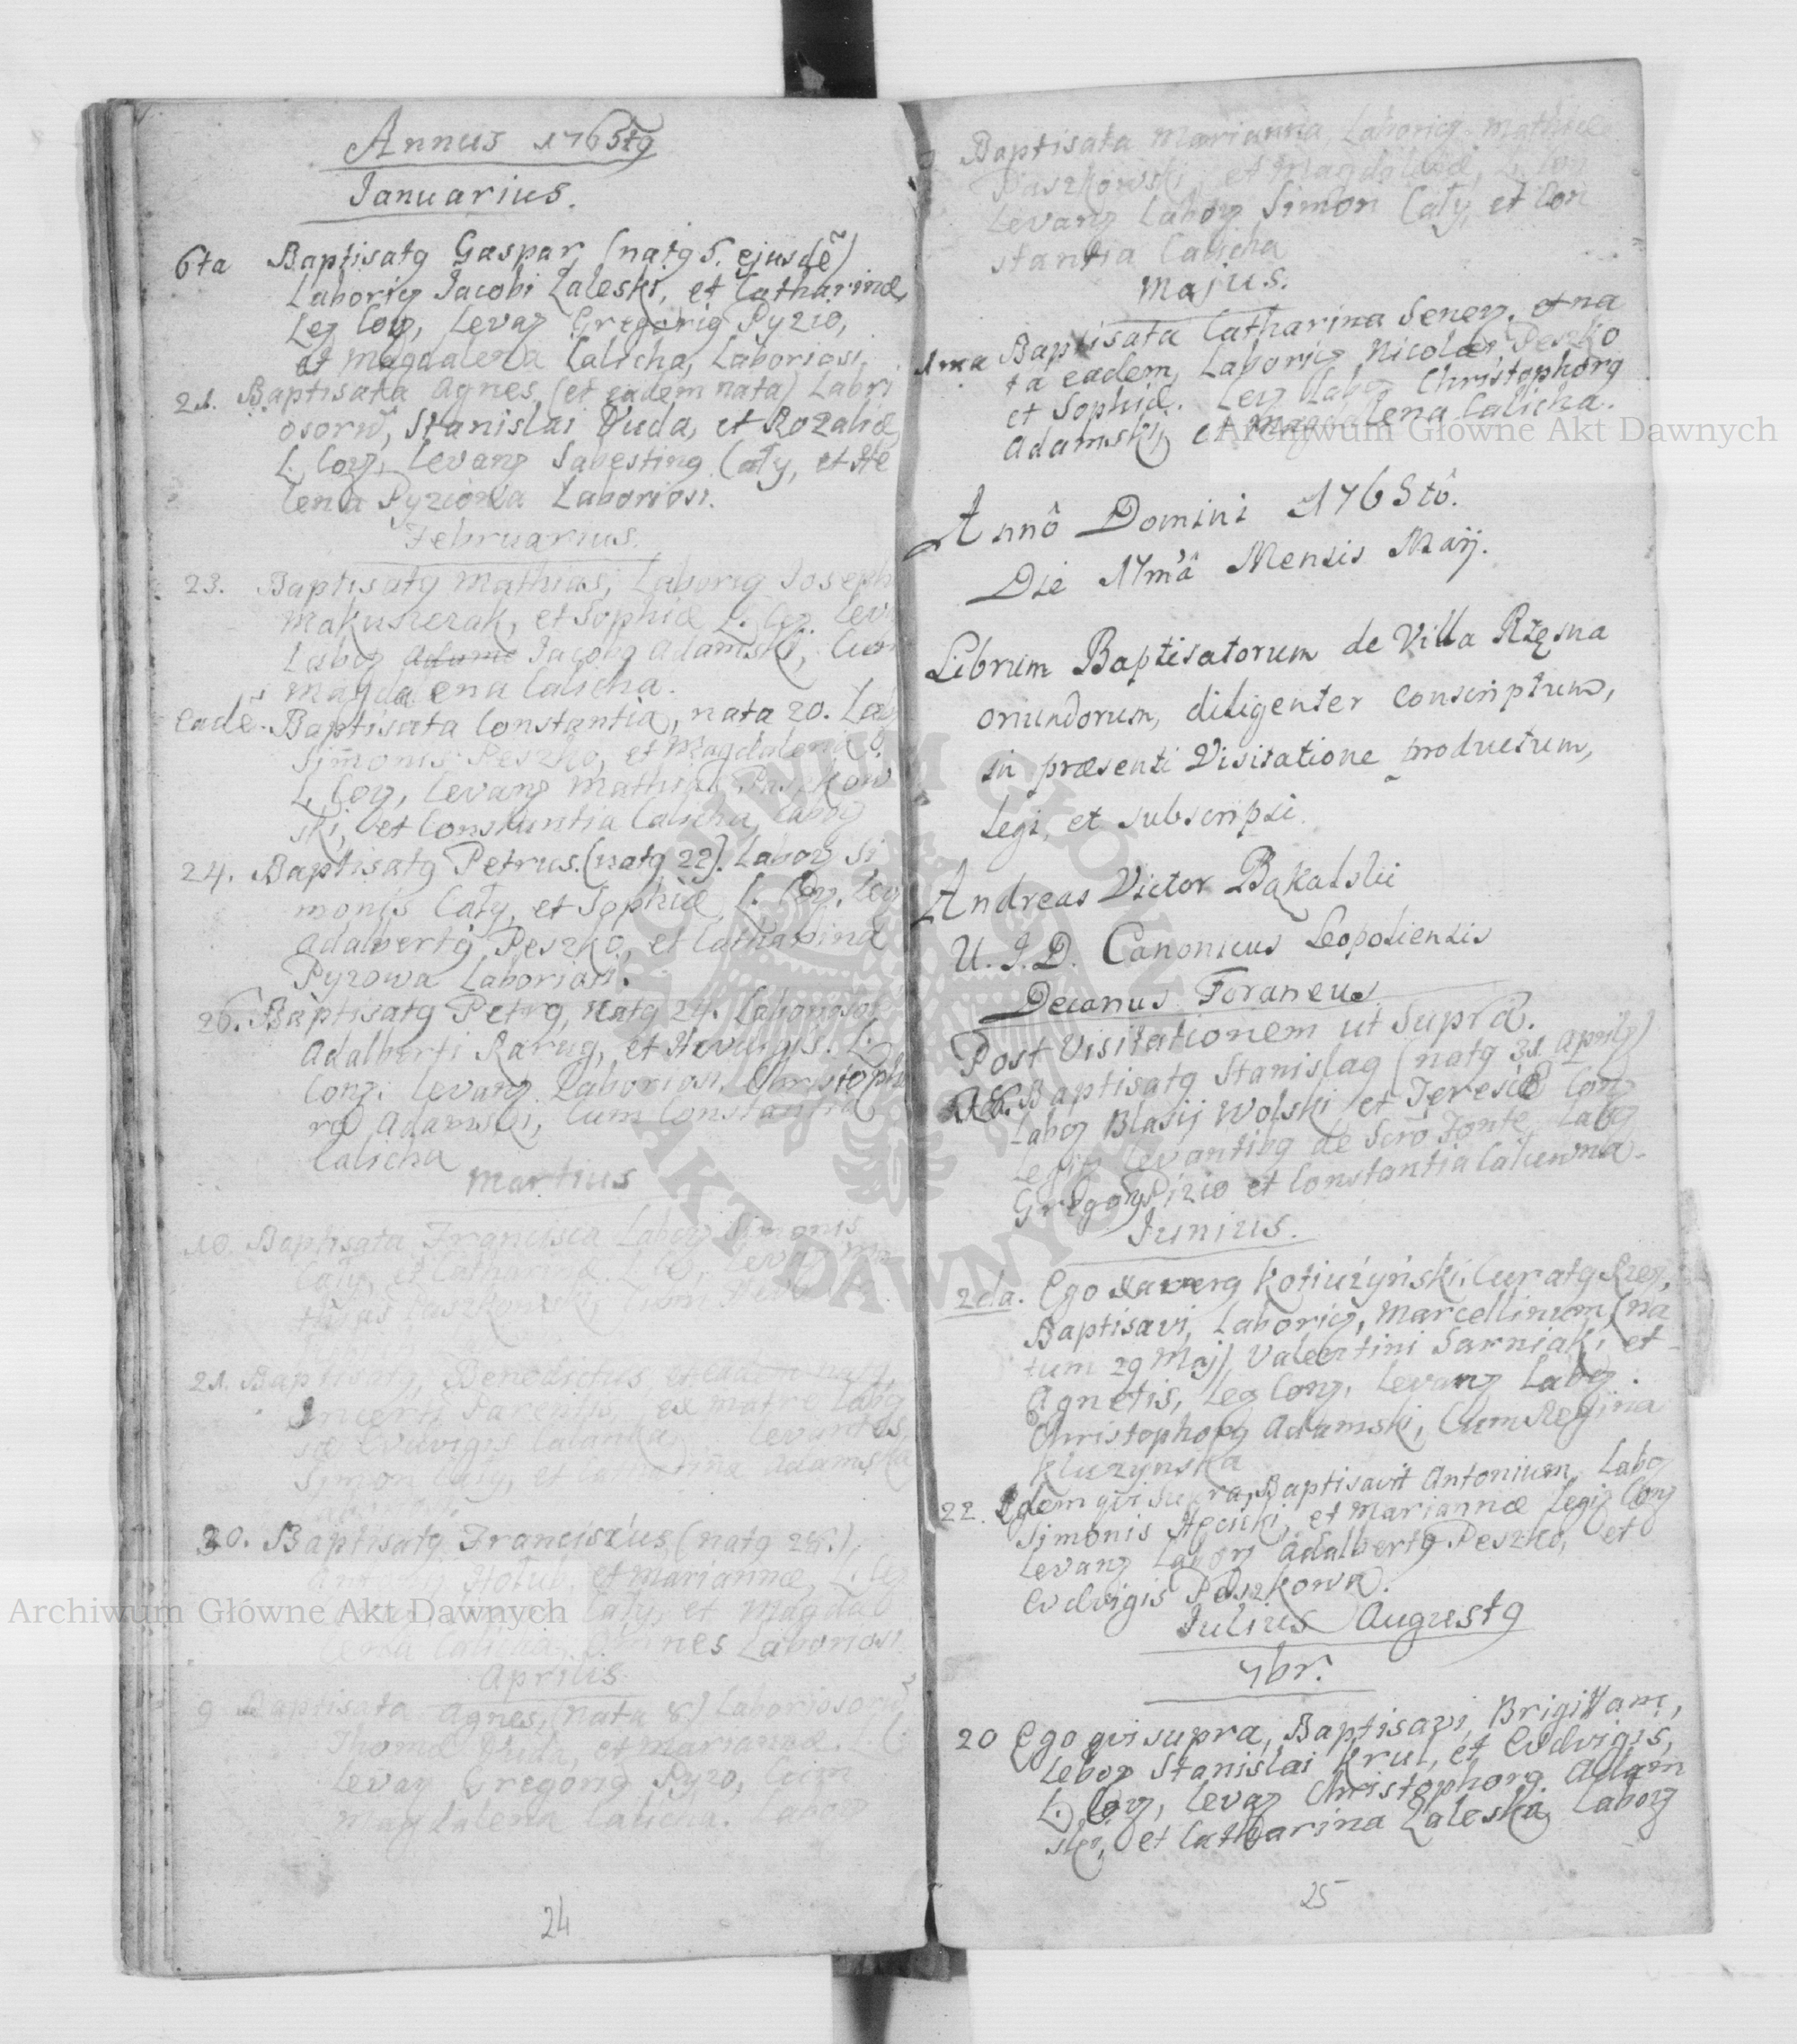 Annus 1765tg
Januarius.
6ta Baptisatg Gaspar, (natg 5. ejusdẽ)
Laboriõ Jacobi Zaleski, et Catharinæ,
Leg Coñ, Levañ Gregorig Pyzio,
et Magdalena Calicha, Laboriosi.
21. Baptisata Agnes, (et eadem nata) Labri
osorũ, Stanislai Duda, et Rozaliæ,
L. Coñ, Levanñ Sabesting Caty, et He
lena Pyziowa Laboriosi.
Februarius.
23. Baptisatg Mathias, Laboriõ Joseph
Makuszczak, et Sophiæ L. Coñ. Lev
Labõ Jacobg Adamski, Cum
Magdalena Calicha.
eadẽ. Baptisata Constantia, nata 20. Lab
Simonis Peszko, et Magdalenæ
L. Coñ, Levanñ Mathias Paszkow
ski, et Constantia Calicha, Labõ
24. Baptisatg Petrus. (natg 22). Labõ Si
monis Caty, et Sophiæ, L. Coñ. Lev
Adalbertg Peszko, et Catharina
Pyzowa Laboriosi.
26. Baptisatg Petrg, natg 24. Laborioso
Adalberti Rarug, et Hedvigis. L.
Conñ. Levanñ Laboriosi Christopho
rg Adamski, Cum Constantia
Calicha
Martius
10. Baptisata Francisca Labõ Simonis
Caty, et Catharinæ L. Co, Levañ Ma
thias Paszkowski, Cum
21. Baptisatg, Benedictus, et eadem natg,
Incerti Parentis, ex matre Labo
sæ Edvigis Levantes
Simon Caty, et Catharina Adamska
30. Baptisatg Franciscus (natg 28.),
Holub, et Mariannæ, L. Co
Caty, et Magda
lena Calicha, Omnes Laboriosi.
Aprilis
9 Baptisata Agnes, (nata 8) Laboriosorũ
Thomæ Duda, et Mariannæ. L.
Levañ Gregorig Pyzo, Cum
Magdalena Calicha. Labõ
24
Baptisata Marianna Laboriõ Mathiæ
Paszkowski, et Magdalenæ, L. Coñ
Levanñ Labõ Simon Caty, et Con
stantia Calicha
Majus.
1ma Baptisata Catharina Seneñ. et na
ta eadem, Laboriõ Nicolai Peszko
et Sophiæ. Leg Labõ Christophorg
Adamski, et Magdalena Calicha.
Annô Domini 1765tô.
Die 17mâ Mensis Maij.
Librum Baptisatorum de Villa Rzęsna
oriundorum, diligenter conscriptum,
in præsenti Visitatione productum,
legi, et subscripsi.
Andreas Victor Bąkalski
U. J. D. Canonicus Leopoliensis
Decanus Foraneus
Post Visitationem ut Supra.
Baptisatg Stanislag (natg 31 Aprilg)
Labõ Blasij Wolski et Teresiæ Conñ
Legiñ Levantibg de Scro Fonte Labõ
Gregorg Pizio et Constantia
Junius.
2da. Ego Xaverg Kotiużyński, Curatg Rzeñ,
Baptisavi, Laboriõ, Marcellinum (na
tum 29 Maj) Valentini Sarniak, et
Agnetis, Leg Conñ, Levanñ Labõ.
Christophorg Adamski, Cum Regina
Kluzynska
22. Idem qvi Supra, Baptisavit Antonium, Labõ
Simonis Hęcicki, et Mariannæ Legiñ Conñ
Levanñ Labõ Adalbertg Peszko, et
Edvigis Peszkowa.
Julius Augustg
7br.
20 Ego qvi supra, Baptisavi, Brigittam,
Labõ Stanislai Krul, et Edvigis,
L. Coñ, Levañ Christophorg Adam
ski, et Catharina Zaleska, Labõ
25
Archiwum Główne Akt Dawnych
Archiwum Główne Akt Dawnych
ARCHIWUM GŁÓWNE AKT DAWNYCH